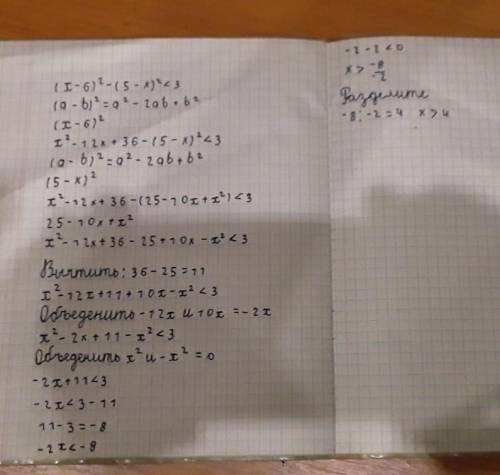 (x-6)²-(5-x)²<3
(a-b)²=a²-2ab+b²
(x-6)²
x²-12x+36-(5-x)²<3
(a-b)²=a²-2ab+b²
(5-x)²
x²-12x+36-(25-10x+x²)<3
25-10x+x²
x²-12x+36-25+10x-x²<3
Вычтить: 36-25=11
x²-12x+11+10x-x²<3
Объеденить -12x и 10x =-2x
x²-2x+11-x²<3
Объеденить x² и -x² =0
-2x+11<3
-2x<3-11
11-3=-8
-2x<-8
-2-2<0
x>-8/-2
Разделите
-8:-2=4 x>4